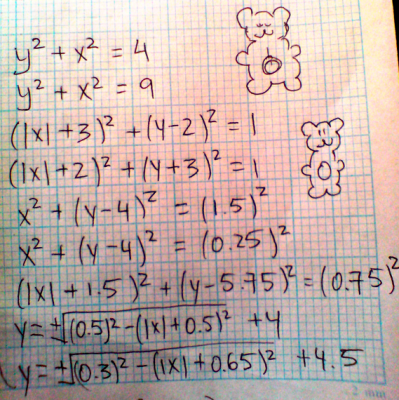 y² + x² = 4
y² + x² = 9
(|x| + 3)² + (y-2)² = 1
(|x| + 2)² + (y+3)² = 1
x² + (y-4)² = (1.5)²
x² + (y-4)² = (0.25)²
(|x| + 1.5)² + (y-5.75)² = (0.75)²
y = ±√(0.5)² - (|x| + 0.5)² + 4
y = ±√(0.3)² - (|x| + 0.65)² + 4.5
2 mm